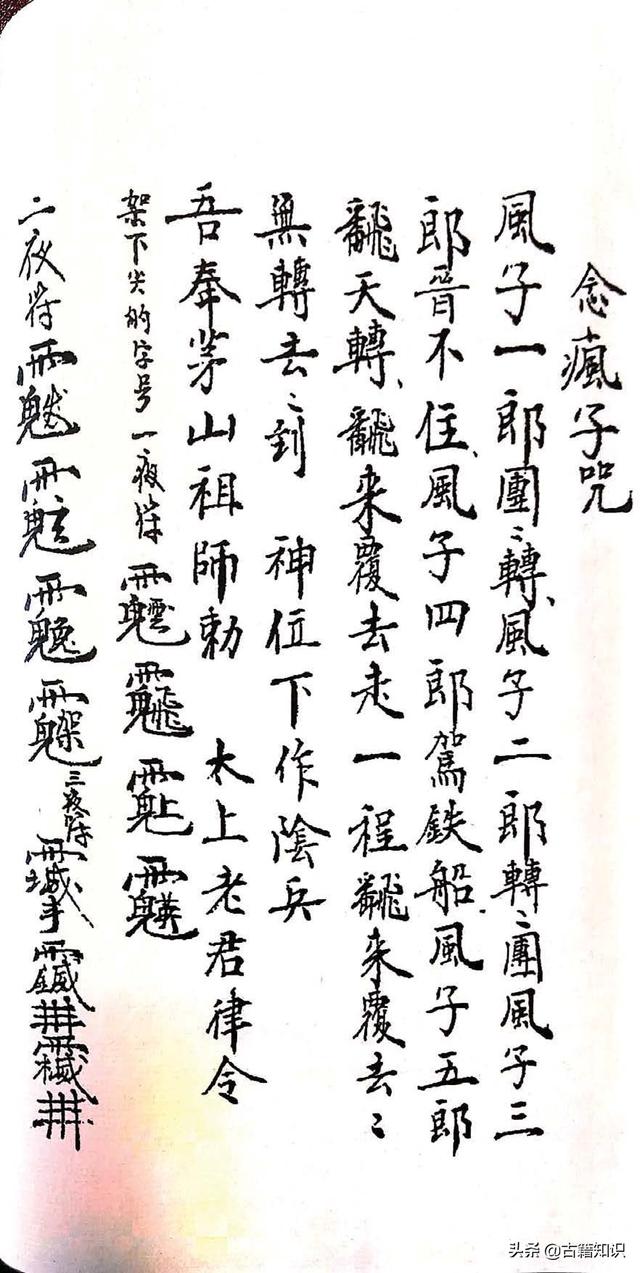 念瘋子咒
風子一郎團〻轉、風子二郎轉〻團風子三
郎晉不住、風子四郎駕鉄船、風子五郎
翻天轉、翻来覆去走一程翻来覆去〻
無轉去〻到 神位下作陰兵
吾奉茅山祖師勅 太上老君律令
架下尖的字号一夜符
二夜符
三夜符
头条 @古籍知识